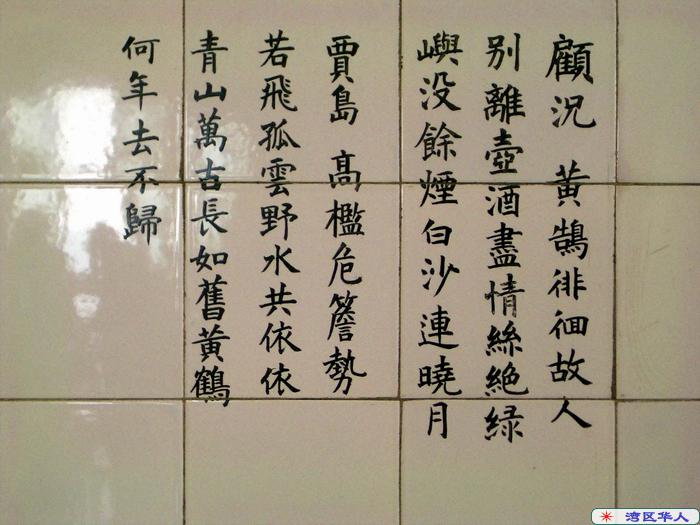 顧況 黃鵠徘徊故人
别離壺酒盡情絲絕緑
嶼没餘煙白沙連曉月
賈島 高檻危簷勢
若飛孤雲野水共依依
青山萬古長如舊黃鶴
何年去不歸
湾区华人